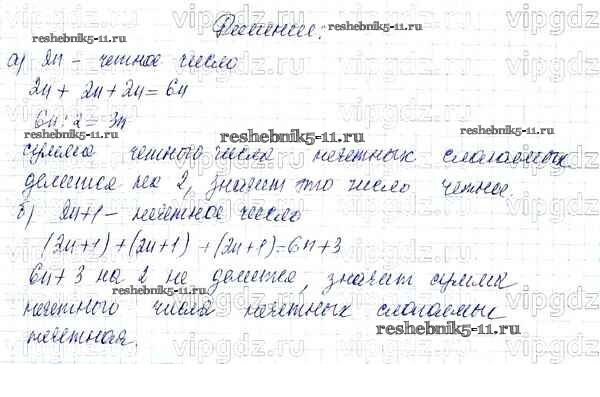 Решение.
а) 2n - четное число
2n + 2n + 2n = 6n
6n : 2 = 3n
сумма четного числа нечетных слагаемых
делится на 2, значит это число четное.
б) 2n+1 - нечетное число
(2n+1) + (2n+1) + (2n+1) = 6n+3
6n+3 на 2 не делится, значит сумма
нечетного числа нечетных слагаемые
нечетная.
reshebnik5-11.ru
reshebnik5-11.ru
reshebnik5-11.ru
reshebnik5-11.ru
reshebnik5-11.ru
reshebnik5-11.ru
vipgdz.ru